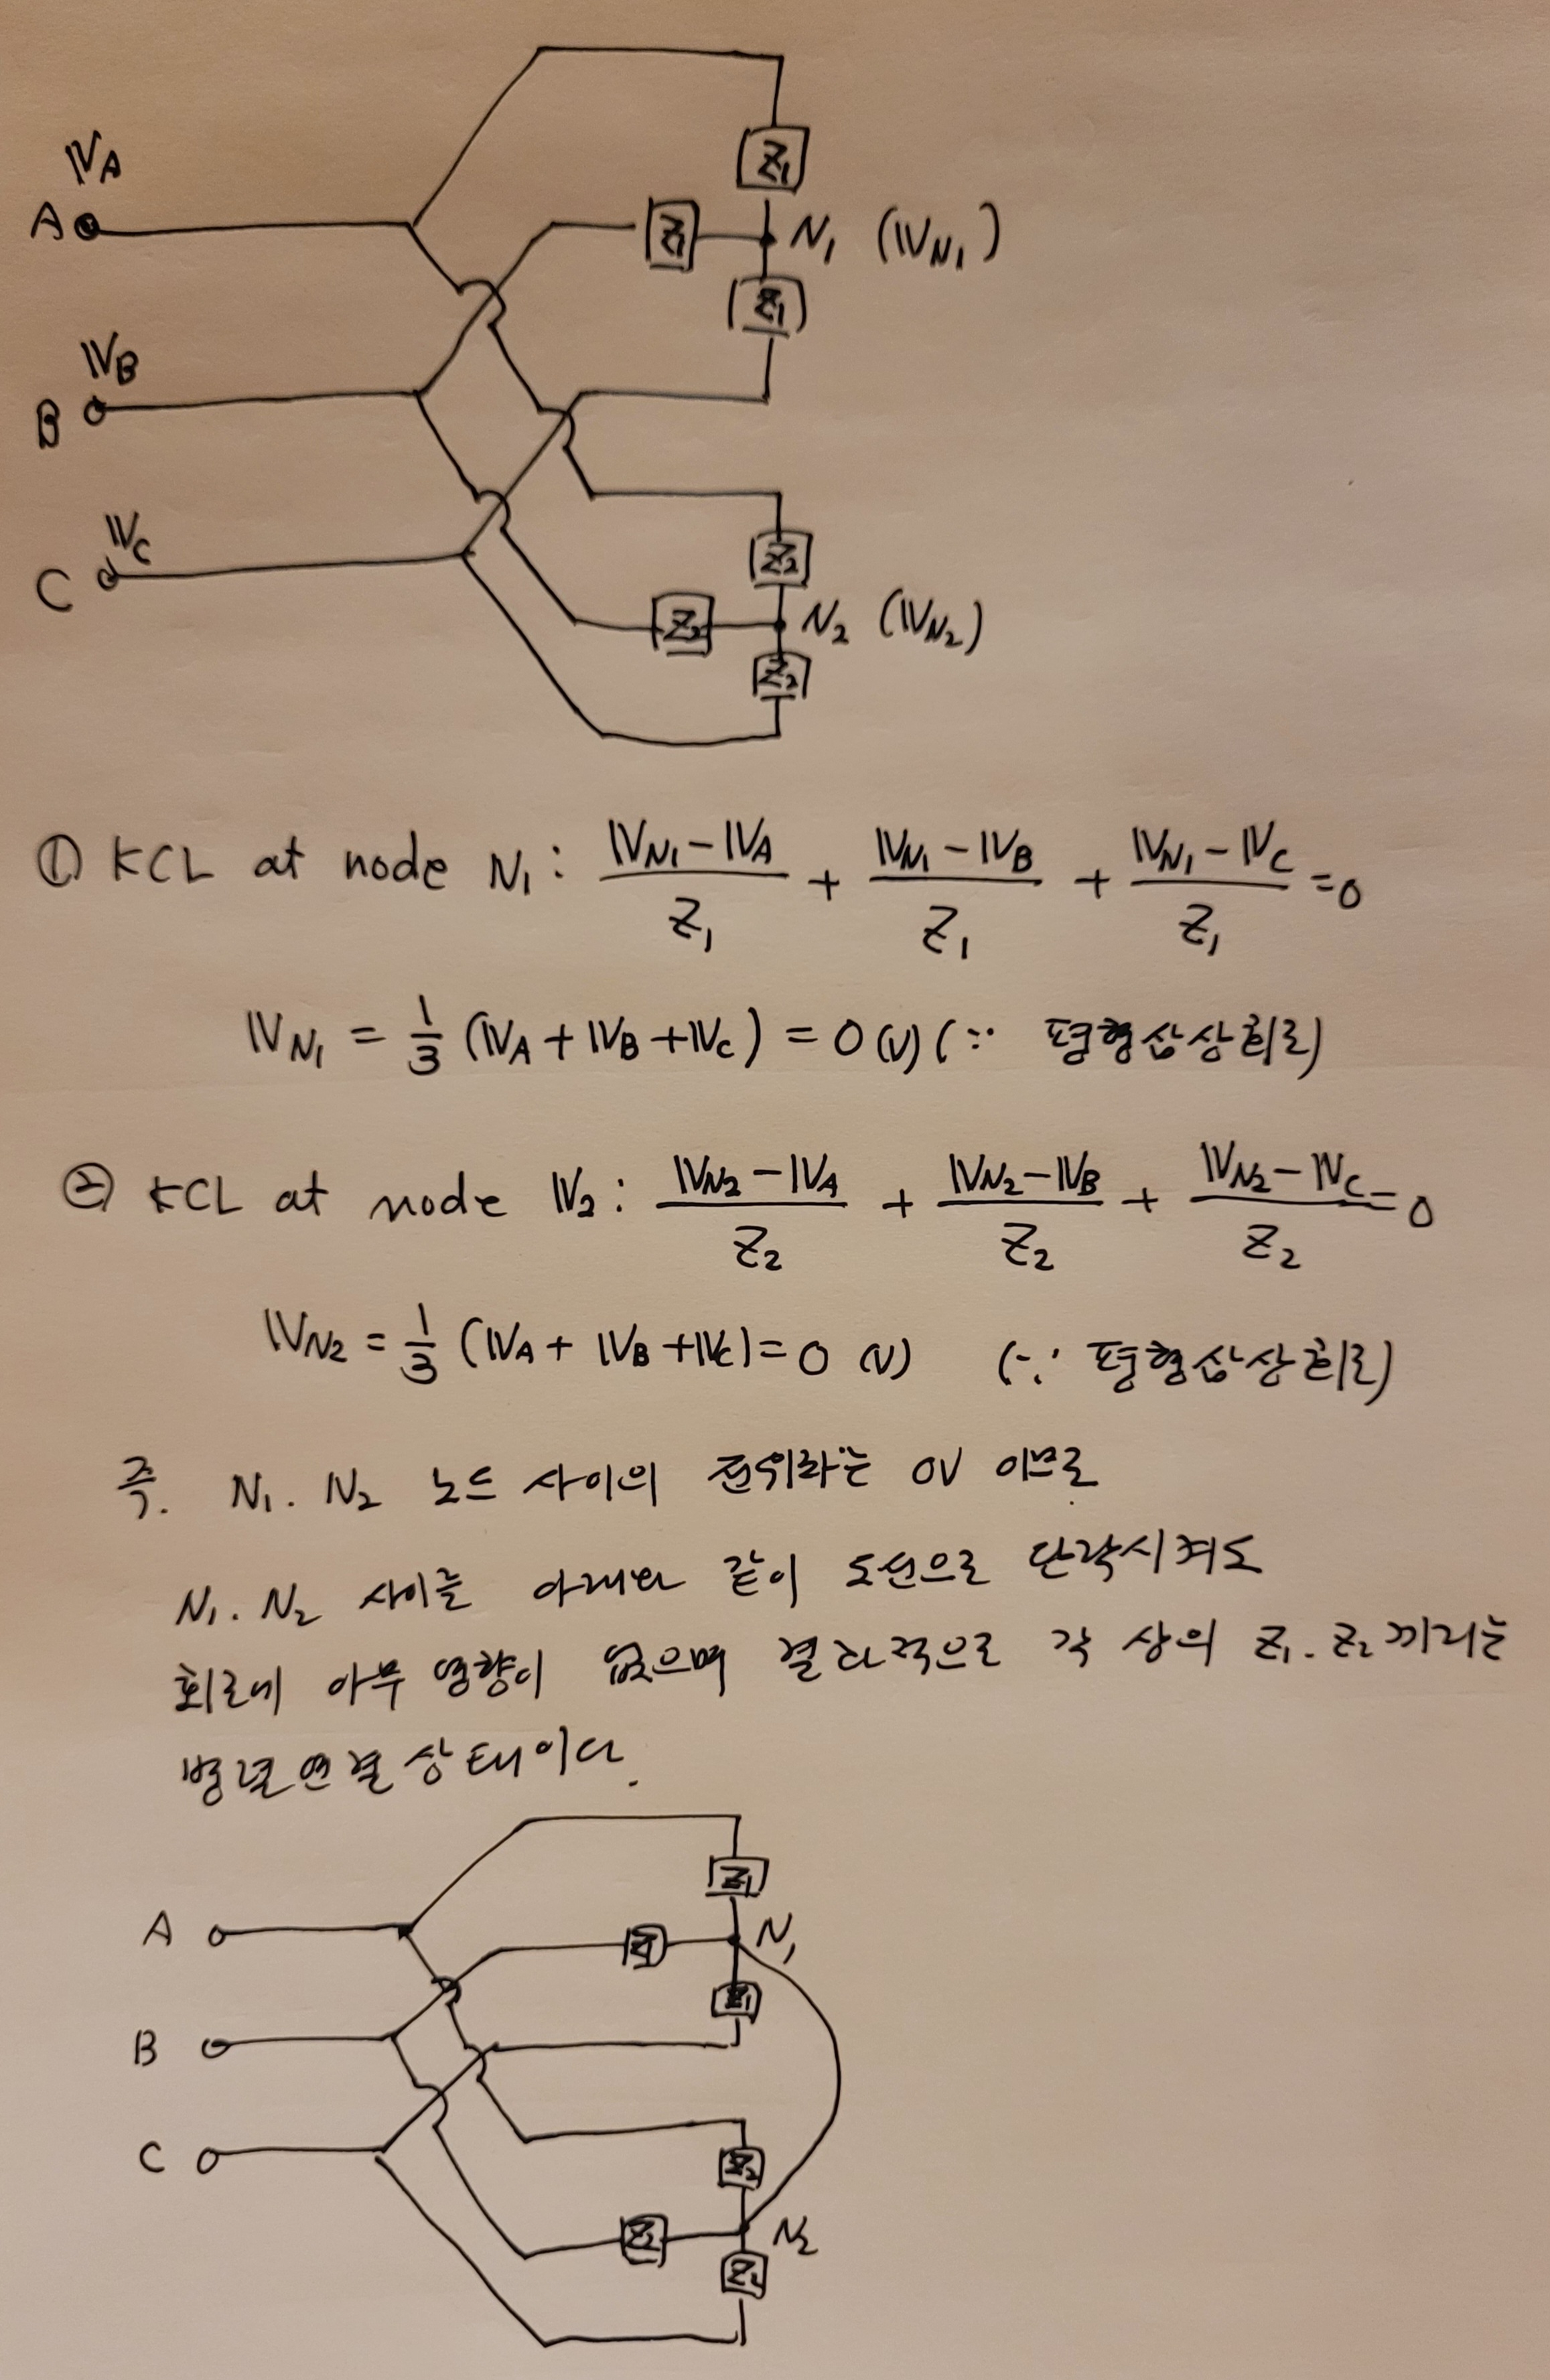 𝕍A
A
Z₁
Z₁
N₁ (𝕍N₁)
Z₁
𝕍B
B
𝕍C
C
Z₂
Z₂
N₂ (𝕍N₂)
Z₂
① KCL at node N₁ : (𝕍N₁ - 𝕍A)/Z₁ + (𝕍N₁ - 𝕍B)/Z₁ + (𝕍N₁ - 𝕍C)/Z₁ = 0
𝕍N₁ = 1/3 (𝕍A + 𝕍B + 𝕍C) = 0 (V) (∵ 평형삼상회로)
② KCL at node N₂ : (𝕍N₂ - 𝕍A)/Z₂ + (𝕍N₂ - 𝕍B)/Z₂ + (𝕍N₂ - 𝕍C)/Z₂ = 0
𝕍N₂ = 1/3 (𝕍A + 𝕍B + 𝕍C) = 0 (V) (∵ 평형삼상회로)
즉. N₁. N₂ 노드 사이의 전위차는 0V 이므로
N₁. N₂ 사이를 아래와 같이 도선으로 단락시켜도
회로에 아무 영향이 없으며 결과적으로 각 상의 Z₁. Z₂ 끼리는
병렬연결상태이다.
A
Z₁
Z₁
N₁
Z₁
B
C
Z₂
Z₂
N₂
Z₂